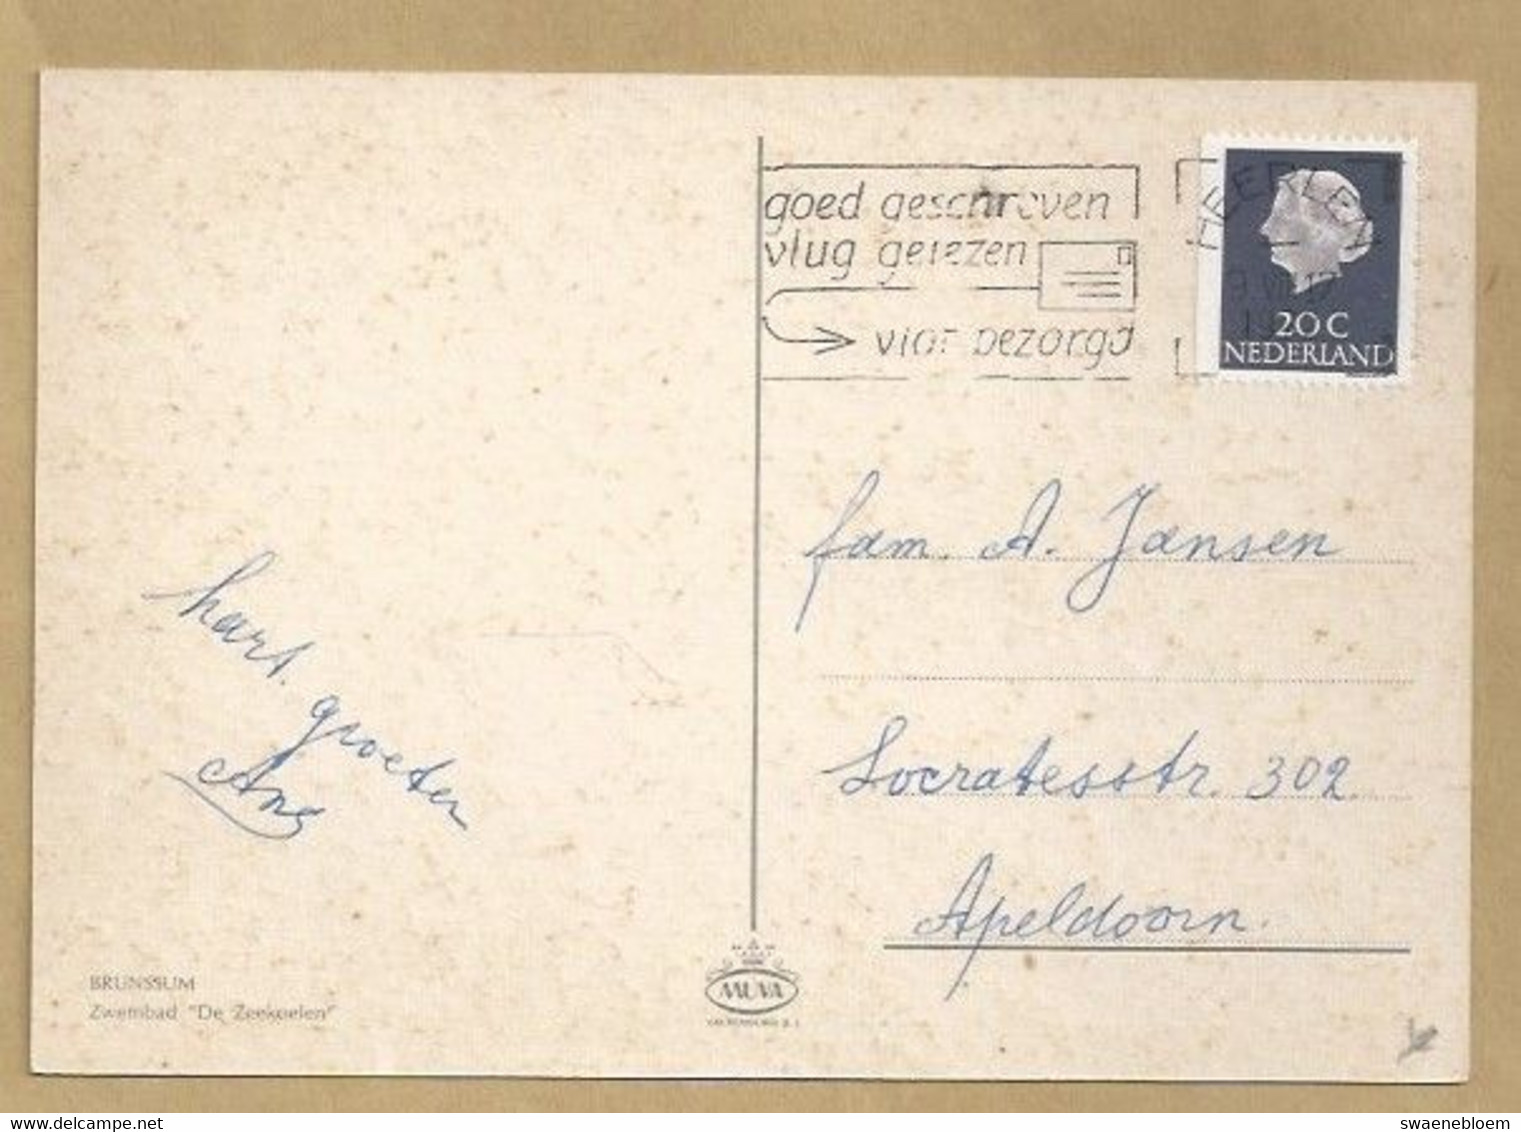 goed geschreven
vlug gelezen
vlot bezorgd
HEERLEN
20 C
NEDERLAND
fam. A. Jansen
Socratesstr. 302
Apeldoorn.
hart. groeten
Ans
BRUNSSUM
Zwembad "De Zeekoelen"
MUVA
www.delcampe.net
swaenebloem